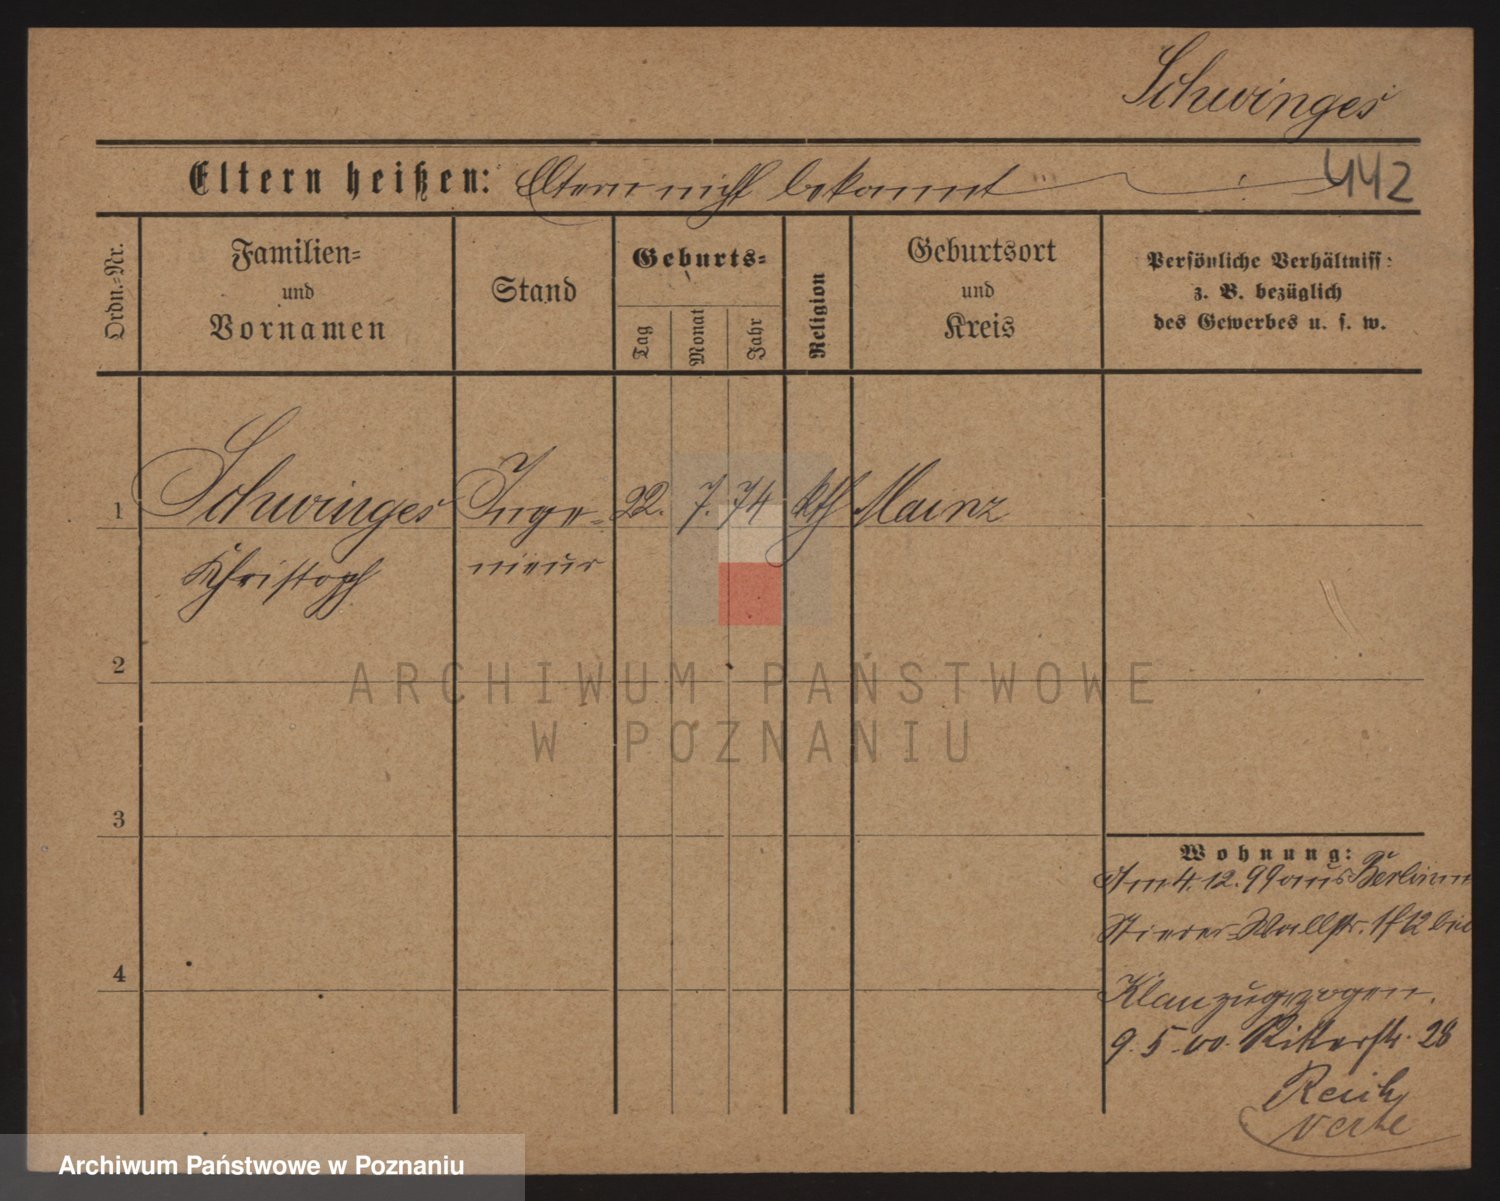 Schwinges
Eltern heißen: Eltern nicht bekannt
442
Ordn.-Nr.
Familien-
und
Vornamen
Stand
Geburts-
Tag
Monat
Jahr
Religion
Geburtsort
und
Kreis
Persönliche Verhältniss:
z. B. bezüglich
des Gewerbes u. s. w.
1 Schwinges Inge- 22. 7. 74 kth Mainz
Christoph nieur
2
3
4
Wohnung:
Am 4. 12. 99 aus Berlin
Wallstr. 12 bei
zugezogen.
9. 5. 00. Ritterstr. 28
ARCHIWUM PAŃSTWOWE
W POZNANIU
Archiwum Państwowe w Poznaniu